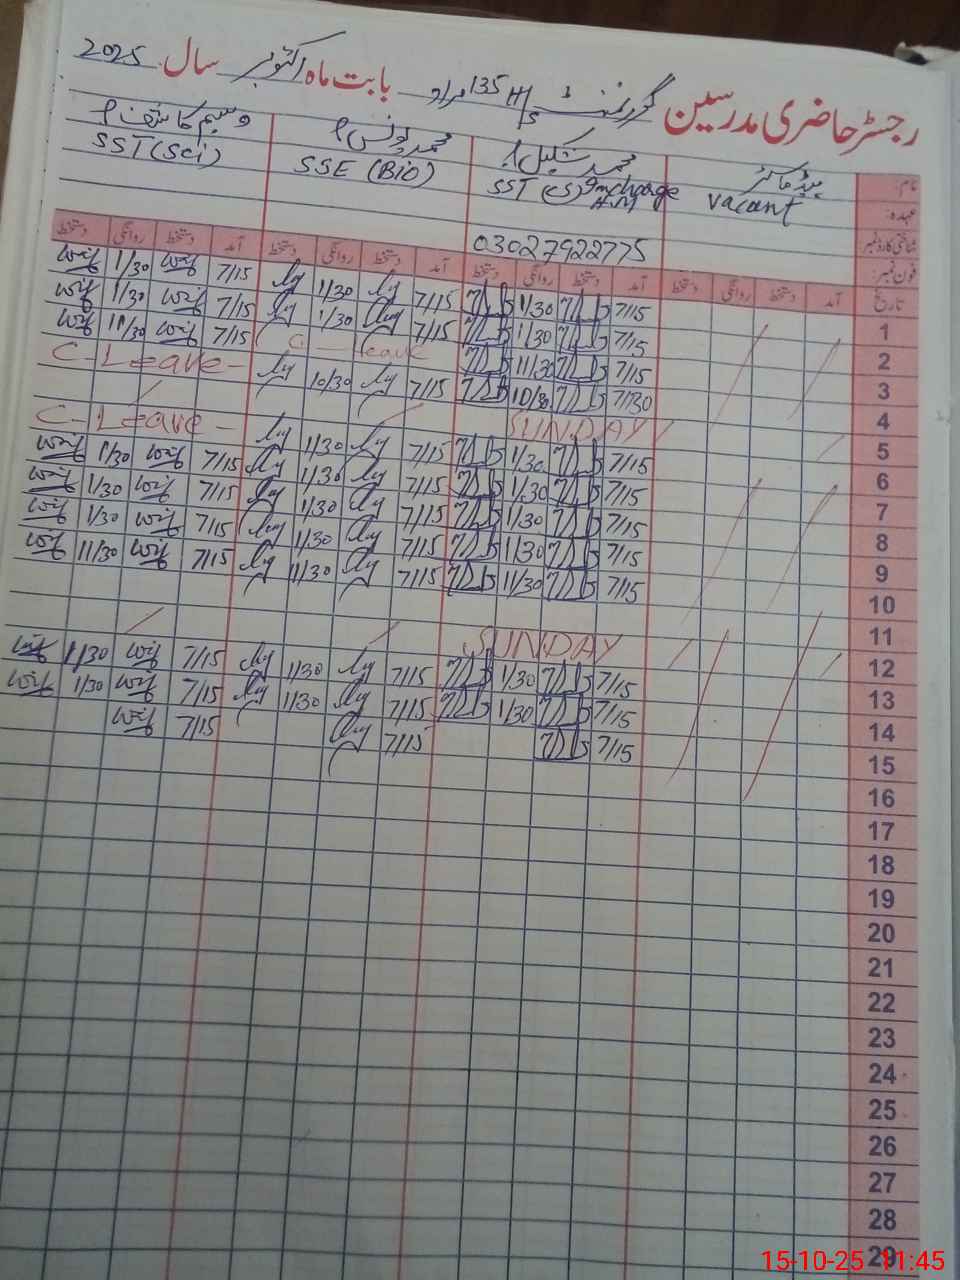 رجسٹر حاضری مدرسین گورنمنٹ H/S 135 مراد بابت ماہ اکتوبر سال 2025
نام: ہیڈ ماسٹر محمد شکیل محمد یونس وسیم کاشف
عہدہ: vacant SST (S) Incharge H.M SSE (Bio) SST (Sci)
شناختی کارڈ نمبر
فون نمبر: 03027922775
تاریخ آمد دستخط روانگی دستخط آمد دستخط روانگی دستخط آمد دستخط روانگی دستخط آمد دستخط روانگی دستخط
1 7/15 1/30 7/15 1/30 7/15 1/30
2 7/15 1/30 7/15 1/30 7/15 1/30
3 7/15 11/30 C- Leave 7/15 11/30
4 7/30 10/30 7/15 10/30 C- Leave-
5 SUNDAY
6 7/15 1/30 7/15 1/30 C- Leave-
7 7/15 1/30 7/15 1/30 7/15 1/30
8 7/15 1/30 7/15 1/30 7/15 1/30
9 7/15 1/30 7/15 1/30 7/15 1/30
10 7/15 11/30 7/15 11/30 7/15 11/30
11
12 SUNDAY
13 7/15 1/30 7/15 1/30 7/15 1/30
14 7/15 1/30 7/15 1/30 7/15 1/30
15 7/15 7/15 7/15
16
17
18
19
20
21
22
23
24
25
26
27
28
29
15-10-25 11:45